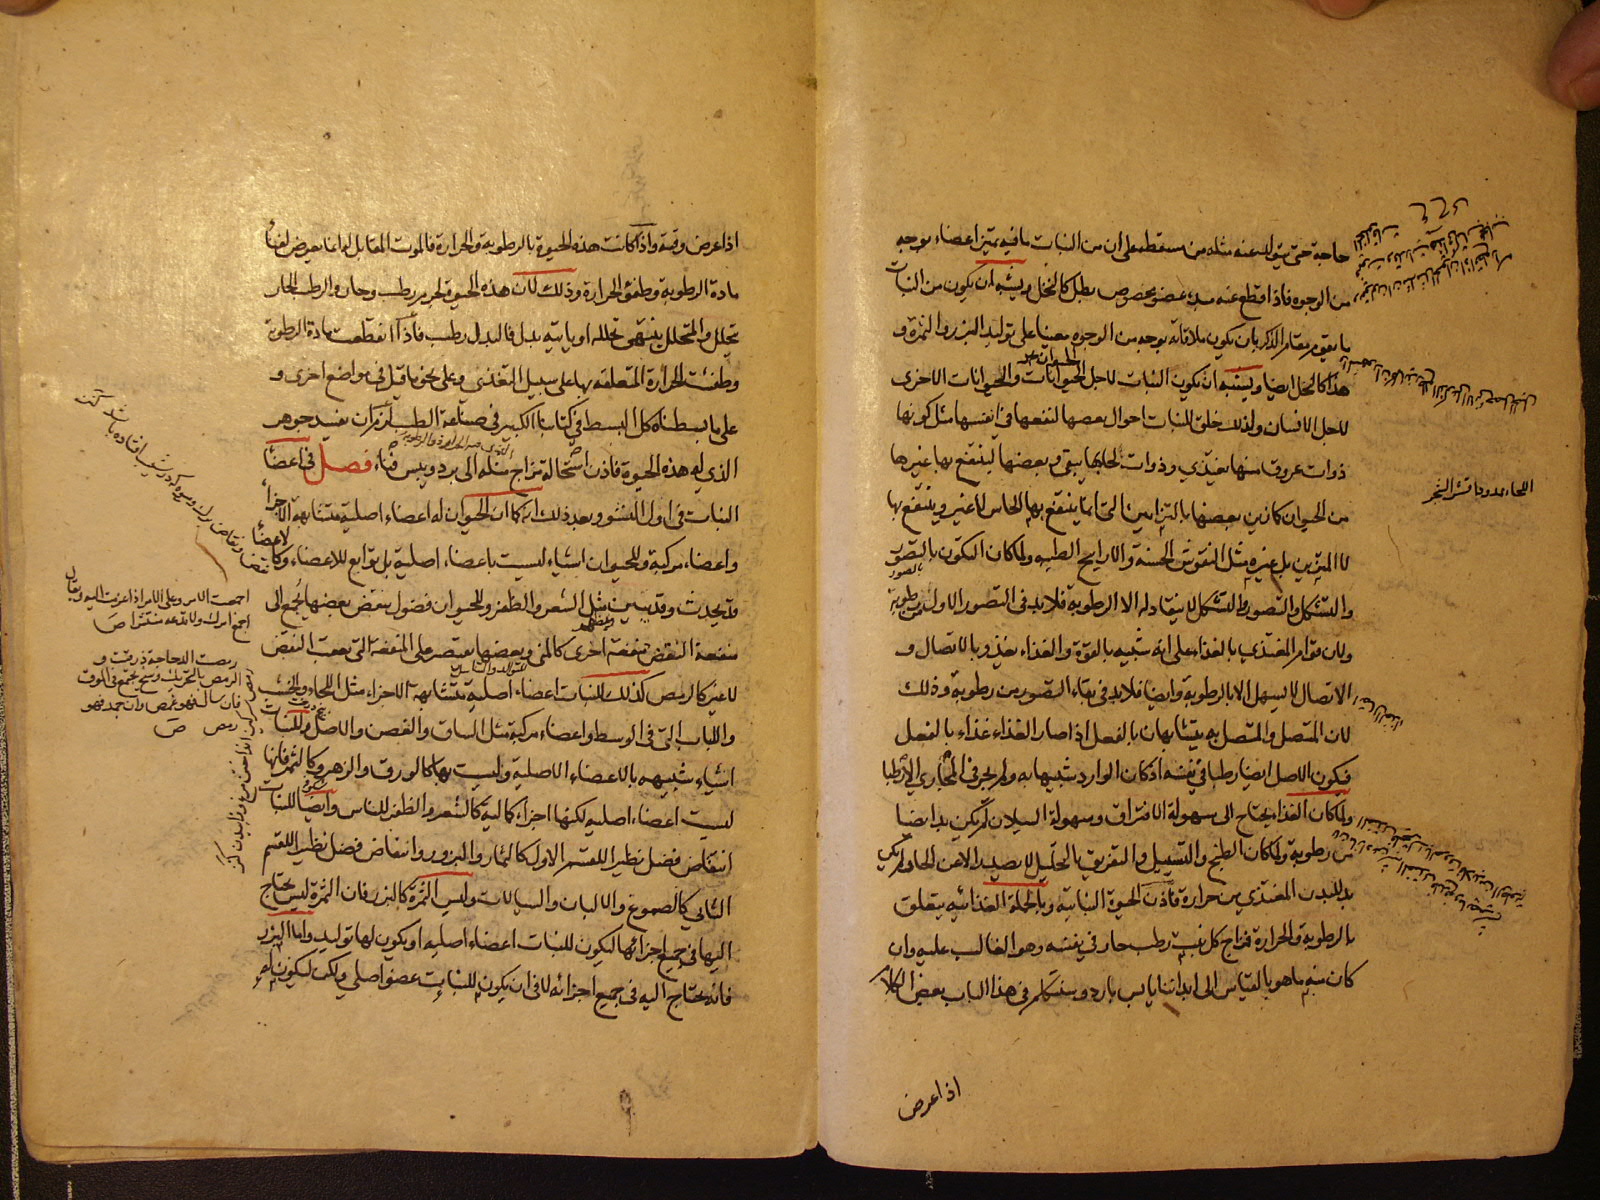 حاجة حتى يتولد عنه مثله من سقط على ان من النبات ما فيه تميز اعضاء بوجه
من الوجوه فاذا قطع عنه مبدء عضو مخصوص بطل كالنخل ويشبه ان يكون من النبات
ما يقوم مقام الذكر بان يكون ملاقاته بوجه من الوجوه معينا على توليد البزر والثمرة و
هذا كالنخل ايضا ويشبه ان يكون النبات لاجل الحيوانات والحيوانات الاخرى
لاجل الانسان ولذلك خلق للنبات احوال بعضها لنفعها في انفسها مثل كونها
ذوات عروق منها يغتذي وذوات لحا بها يبقى وبعضها لينتفع بها غيرها
من الحيوان كان بعضها بالتزايين التي انما ينتفع بهم الحاس لا غير وينتفع بها
لا المتزين بل غيره مثل النقوش الحسنة والاراييح الطيبه ولما كان التكون بالتصور
والتشكل والتصور والتشكل لا ينقاد له الا الرطوبة فلا بد في التصور الاول من رطوبة
ولان قوام المغتذي بالغذاء على انه شبيه بالقوة والغذاء يغذو بالاتصال و
الاتصال لا يسهل الا بالرطوبة وايضا فلا بد في بقاء التصور من رطوبة وذلك
لان المتصل والمتصل به يتشابهان بالفعل اذ اصار الغذاء غذاء بالفعل
فيكون الاصل ايضا رطبا في نفسه اذ كان الوارد شبيها به ولم يجز في المجاري الا رطبا
ولما كان الغذاء يحتاج الى سهولة الافتراق وسهولة السيلان لم يكن بد ايضا
من رطوبة ولما كان الطبخ والتسييل والتفريق بالتحليل لا يصدر الا عن الحار ولم يكن
بد للبدن المغتذي من حرارة فاذن الحيوة النباتيه وبالجملة الغذائيه يتعلق
بالرطوبة والحرارة فمزاج كل نبت رطب حار في نفسه وهو الغالب عليه وان
كان منه ما هو بالقياس الى ابداننا يابس بارد وسنتكلم في هذا الباب بعض الكلام
اللحاء ممدود قشر الشجر
اذا عرض
اذا عرض وقته واذا كانت هذه الحيوة بالرطوبة والحرارة فالموت المقابل له انما يعرض لفناء
مادة الرطوبة وطفئ الحرارة وذلك لان هذه الحيوة لجرم رطب وحار والرطب الحار
يتحلل والمتحلل ينتهي تحلله او ياتيه بدل فالبدل رطب فاذا انقطعت مادة الرطوبة
وطفئت الحرارة المتعلقه بها على سبيل التغذي وعلى نحو ما قيل في مواضع اخرى و
على ما بسطناه كل البسط في كتابنا الكبير في صناعة الطب لم يكن ان يفسد جوهر
الذي له هذه الحيوة فاذن استحالة مزاج مثله الى برد ويبس فناء فصل في اعضاء
النبات في اول النشو وبعد ذلك انه كما ان الحيوان له اعضاء اصلية متشابهة الاجزاء
واعضاء مركبة وللحيوان اشياء ليست باعضاء اصلية بل توابع للاعضاء وكا
قد يحدث وقد يبين مثل الشعر والظفر وللحيوان فضول ينفض بعضها يجمع الى
منفعة النفض منفعة اخرى كالمني وبعضها يقتصر على المنفعة التي تعقب النفض
لا غير كالرمص كذلك للنبات اعضاء اصلية متشابهة الاجزاء مثل اللحاء والخشب
واللباب التي في الوسط واعضاء مركبة مثل الساق والغصن والاصل وللنبات
اشياء شبيهه بالاعضاء الاصلية وليست بها كالورق والزهر وكالثمر فانها
ليست اعضاء اصليه لكنها اجزاء كماليه كالشعر والظفر للناس وايضا للنبات
انتفاض فضل نظير اللقسم الاول كالثمار والبزور وانتفاض فضل نظير اللقسم
الثاني كالصموغ والالبان والسيالات وليس الثمرة كالبزر فان الثمرة ليس يحتاج
اليها في جميع اجزائها ليكون للنبات اعضاء اصليه او يكون لها توليد واما البزر
فانه يحتاج اليه في جميع اجزائه لا في ان يكون للنبات عضو اصلي ولكن ليكون لهم
اجمعت الامر وعلى الامر اذا عزمت اليه ويقال
اجمع امرك ولا تدعه منتشرا ص
رمصت الدجاجة ذرقت و
الرمص بالتحريك وسخ يجتمع في الموق
فان سال فهو غمص وان جمد فهو
رمص ص